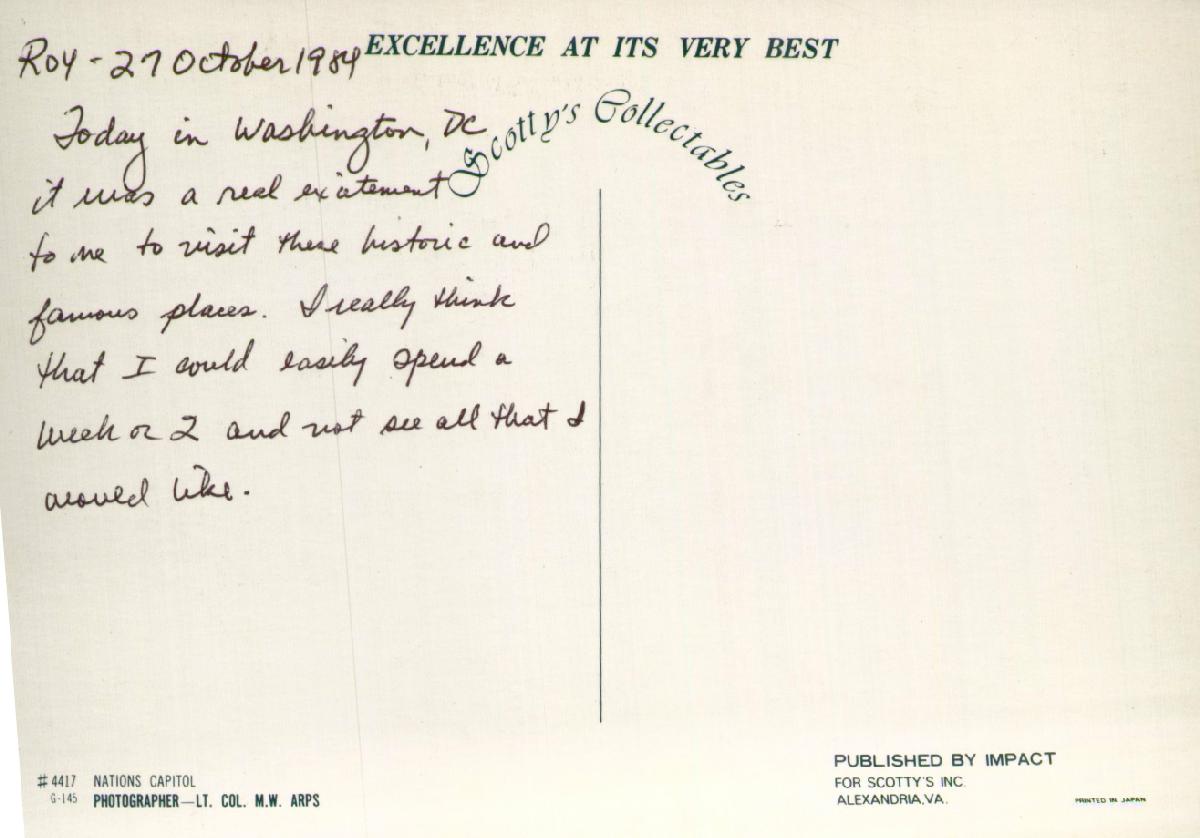 EXCELLENCE AT ITS VERY BEST
Scotty's Collectables
Roy - 27 October 1984
Today in Washington, DC
it was a real exictement
to me to visit these historic and
famous places. I really think
that I could easily spend a
week or 2 and not see all that I
would like.
#4417 NATIONS CAPITOL
G-145 PHOTOGRAPHER—LT. COL. M.W. ARPS
PUBLISHED BY IMPACT
FOR SCOTTY'S INC.
ALEXANDRIA, VA.
PRINTED IN JAPAN